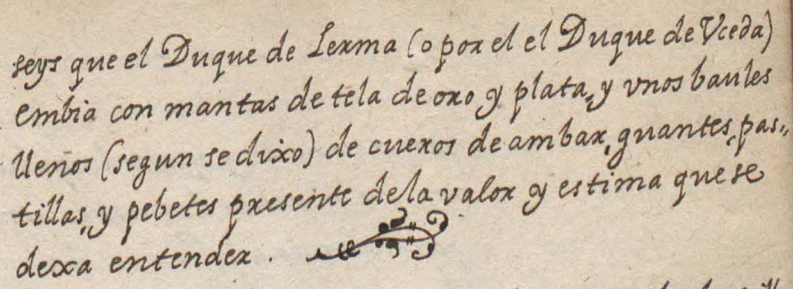 seys que el Duque de Lerma (o por el el Duque de Vceda)
embia con mantas de tela de oro y plata, y vnos baules
llenos (segun se dixo) de cueros de ambar, guantes, pas-
tillas, y pebetes presente dela valor y estima que se
dexa entender.